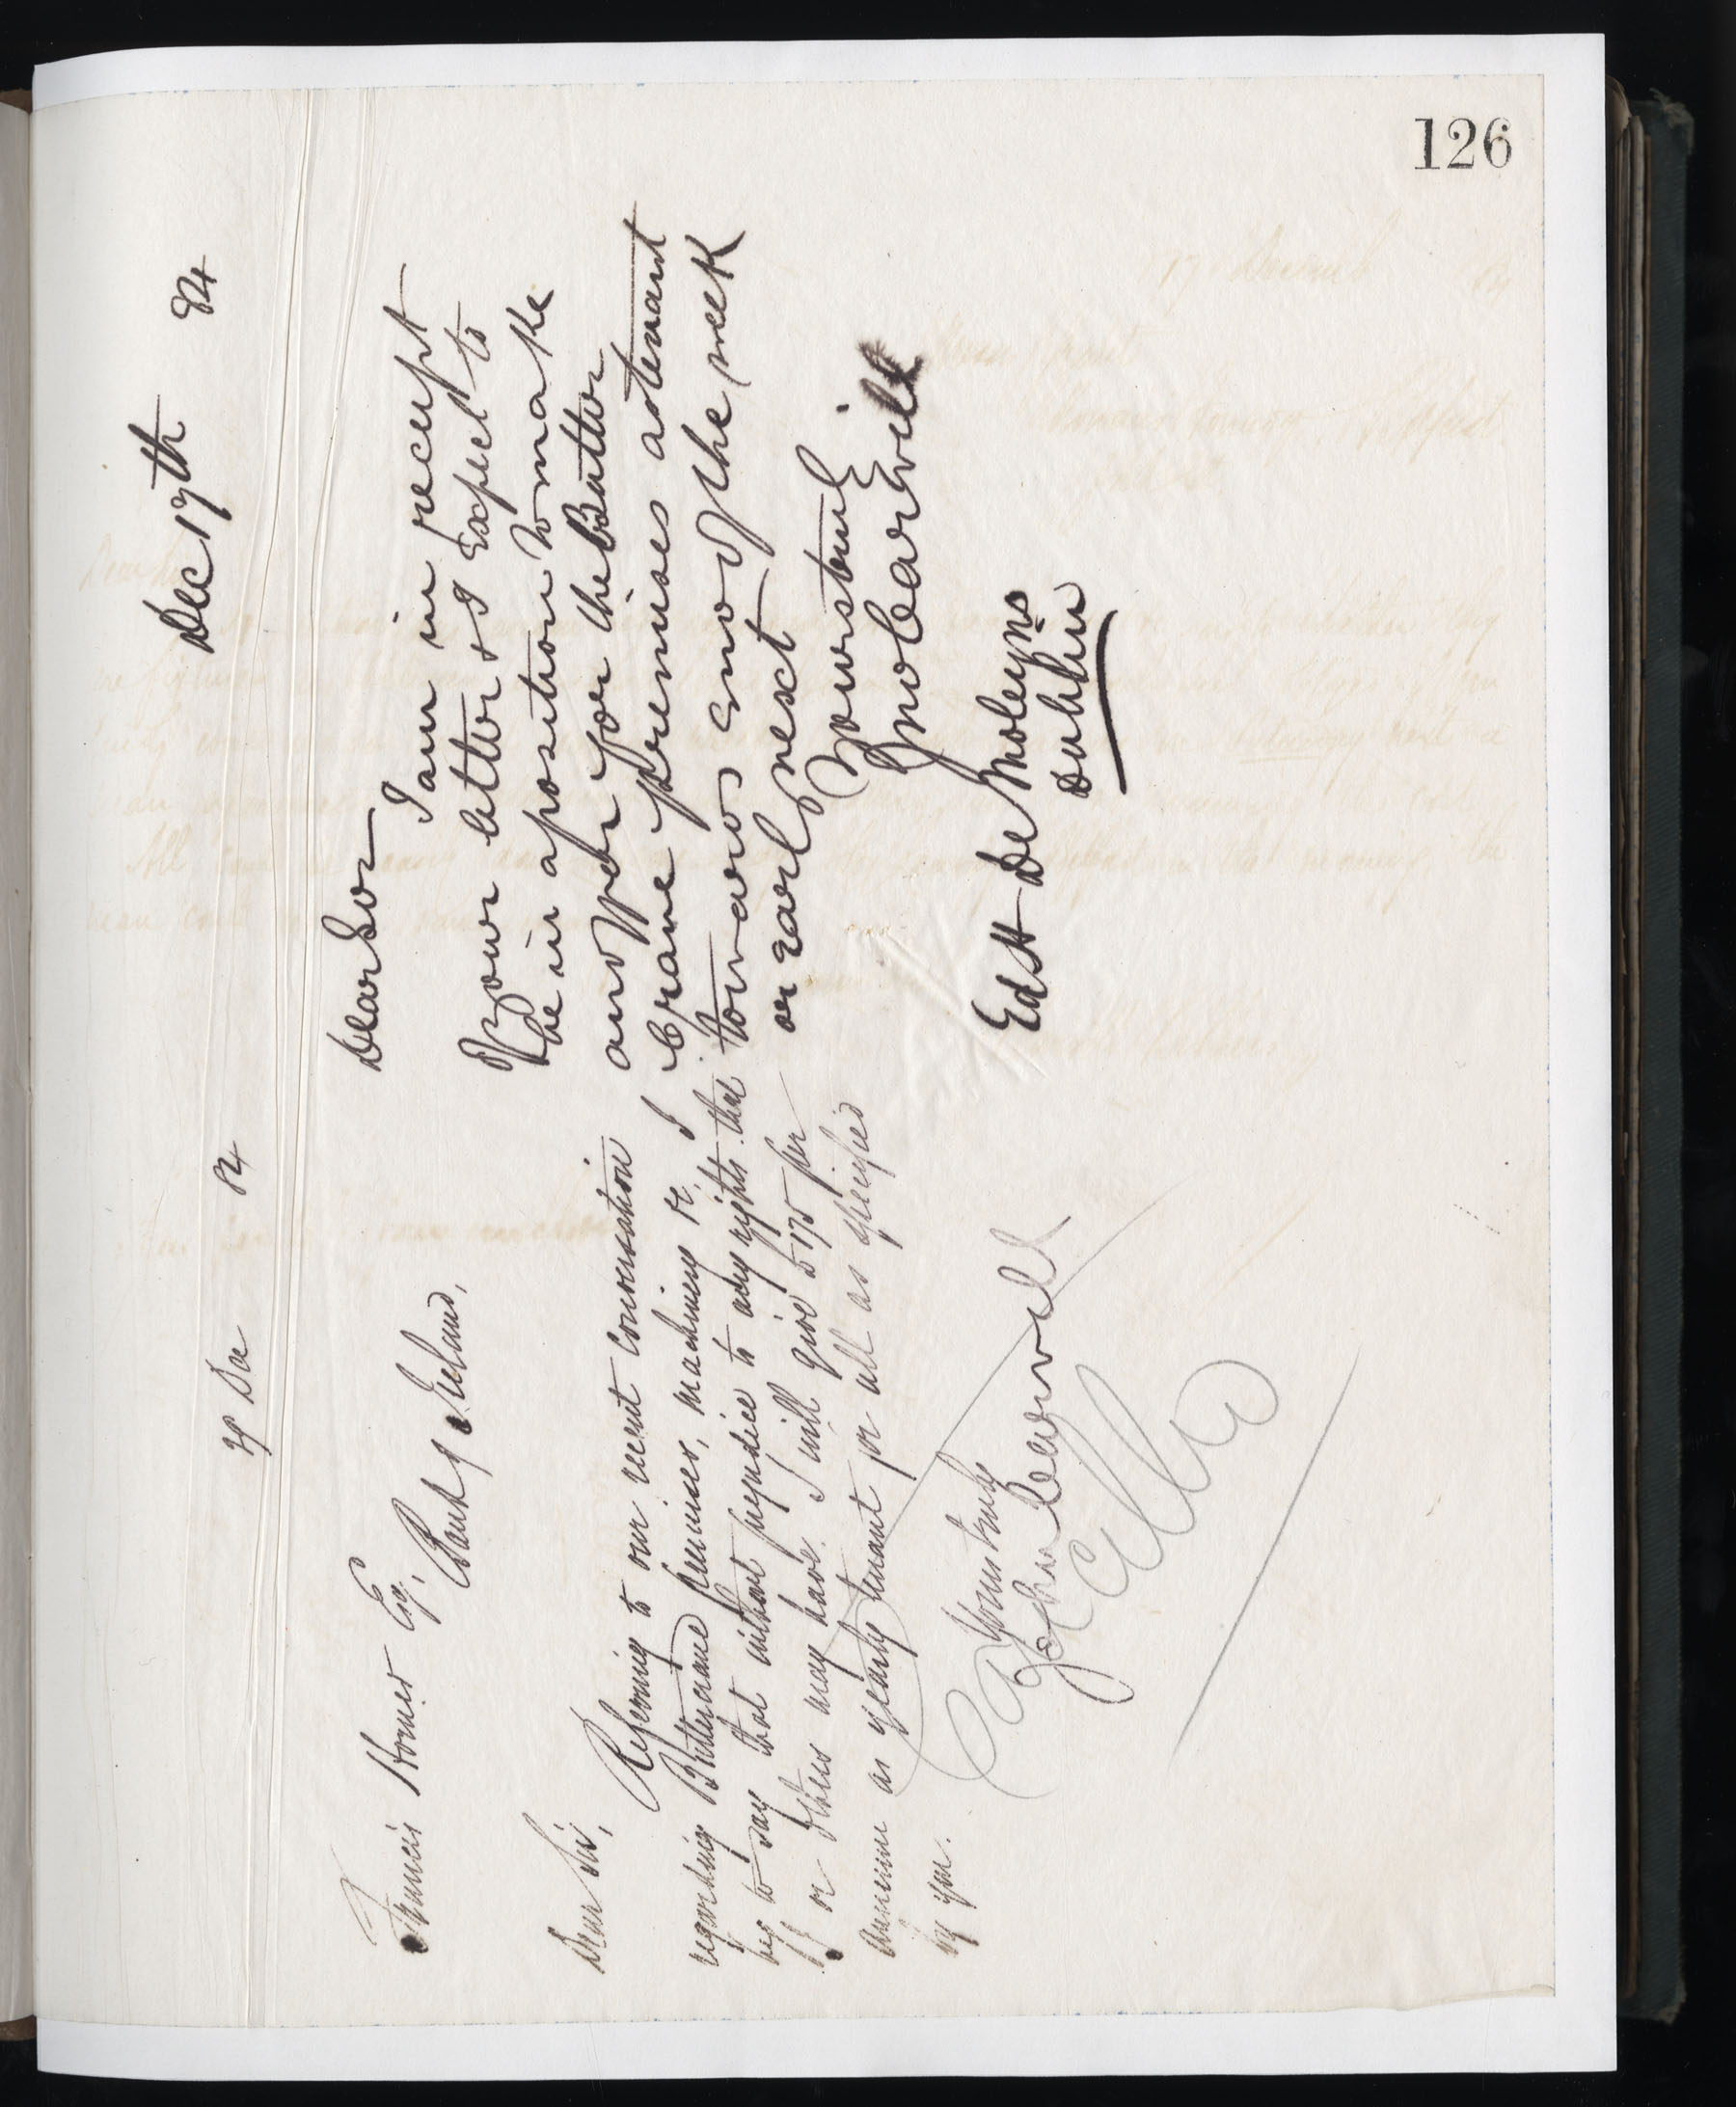 126
29 Dec 84
Francis Homer Esq,
Bank of Ireland,
Dear Sir,
Referring to our recent conversation
regarding Buttercrane premises, machinery &c, I
beg to say that without prejudice to any rights that
I or others may have. I will give £175 per
annum as yearly tenant for all as specified
by you.
Yours truly
John Cearvill
Dec 17th 84
Dear Sir
I am in receipt
of your letter & I Expect to
be in a position to make
an offer for the Butter
Crane premises as tenant
towards End of the week
or early next
Yours truly
Jno Cearvill
Ed H De Moleyns
Dublin